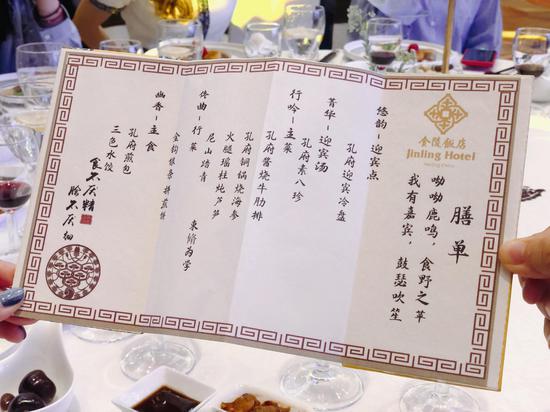 金陵飯店
Jinling Hotel
Nanjing China
膳单
呦呦鹿鸣，食野之苹
我有嘉宾，鼓瑟吹笙
悠韵－迎宾点
孔府迎宾冷盘
菁华－迎宾汤
孔府素八珍
行吟－主菜
孔府酱烧牛肋排
孔府铜锅烧海参
火腿瑶柱炖芦笋
尼山踏青
佟曲－行菜
束脩为学
金钩银 拼煎饼
幽香－主食
孔府煎包
三色水饺
食不厌精
脍不厌细